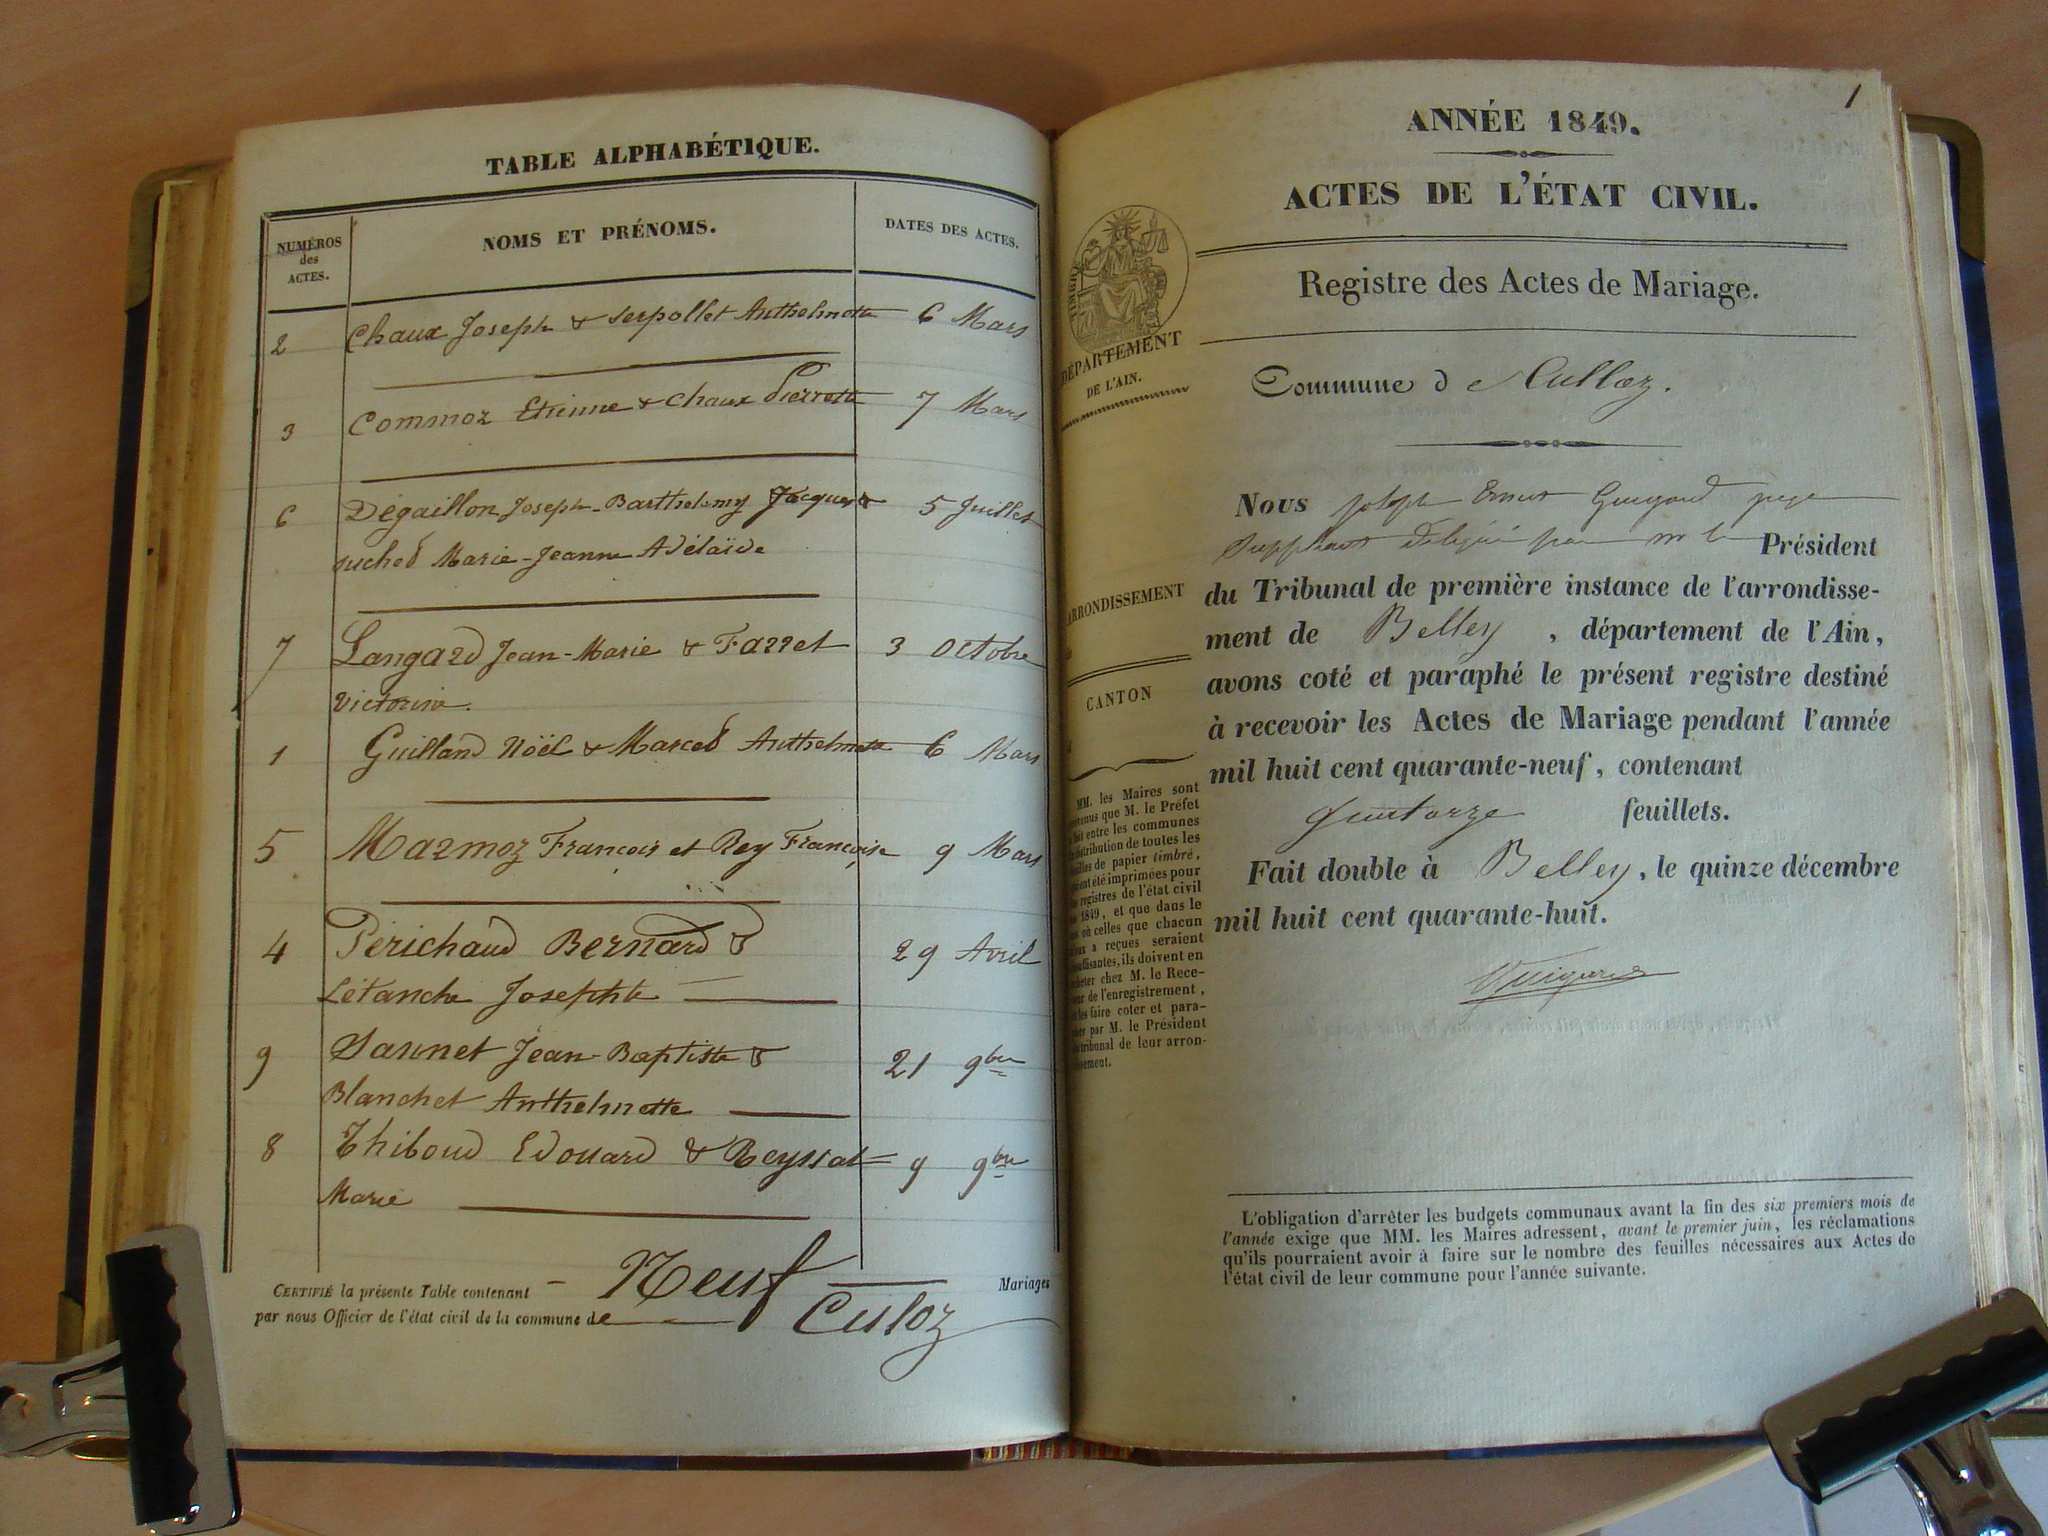 TABLE ALPHABÉTIQUE.
NUMÉROS des ACTES. NOMS ET PRÉNOMS. DATES DES ACTES.
2 Chaux Joseph & Serpollet Anthelmette 6 Mars
3 Commoz Etienne & Chaux Pierrette 7 Mars
6 Dégaillon Joseph-Barthelemy Jacques & 5 Juillet
Juched Marie-Jeanne Adélaïde
7 Langard Jean-Marie & Farret 3 Octobre
Victorine.
1 Guilland Nöël & Marced Anthelmette 6 Mars
5 Marmoz François et Rey Françoise 9 Mars
4 Perichaud Bernard & 29 Avril
Létanche Josephte
9 Jean-Baptiste & 21 9bre
Blanchet Anthelmette
8 Thiboud Edouard & Reyssat 9 9bre
Marie
CERTIFIÉ la présente Table contenant Neuf Mariages
par nous Officier de l'état civil de la commune de Culoz
1
ANNÉE 1849.
ACTES DE L'ÉTAT CIVIL.
Registre des Actes de Mariage.
TIMBRE
DÉPARTEMENT
DE L'AIN.
ARRONDISSEMENT
CANTON
MM. les Maires sont
que M. le Préfet
entre les communes
distribution de toutes les
de papier timbré,
été imprimées pour
registres de l'état civil
1849, et que dans le
où celles que chacun
a reçues seraient
ils doivent en
chez M. le Rece-
de l'enregistrement,
les faire coter et para-
par M. le Président
tribunal de leur arron-
Commune de Culloz.
Nous Joseph Guigard juge
Suppléant délégué par mr le Président
du Tribunal de première instance de l'arrondisse-
ment de Belley, département de l'Ain,
avons coté et paraphé le présent registre destiné
à recevoir les Actes de Mariage pendant l'année
mil huit cent quarante-neuf, contenant
quatorze feuillets.
Fait double à Belley, le quinze décembre
mil huit cent quarante-huit.
L'obligation d'arrêter les budgets communaux avant la fin des six premiers mois de
l'année exige que MM. les Maires adressent, avant le premier juin, les réclamations
qu'ils pourraient avoir à faire sur le nombre des feuilles nécessaires aux Actes de
l'état civil de leur commune pour l'année suivante.